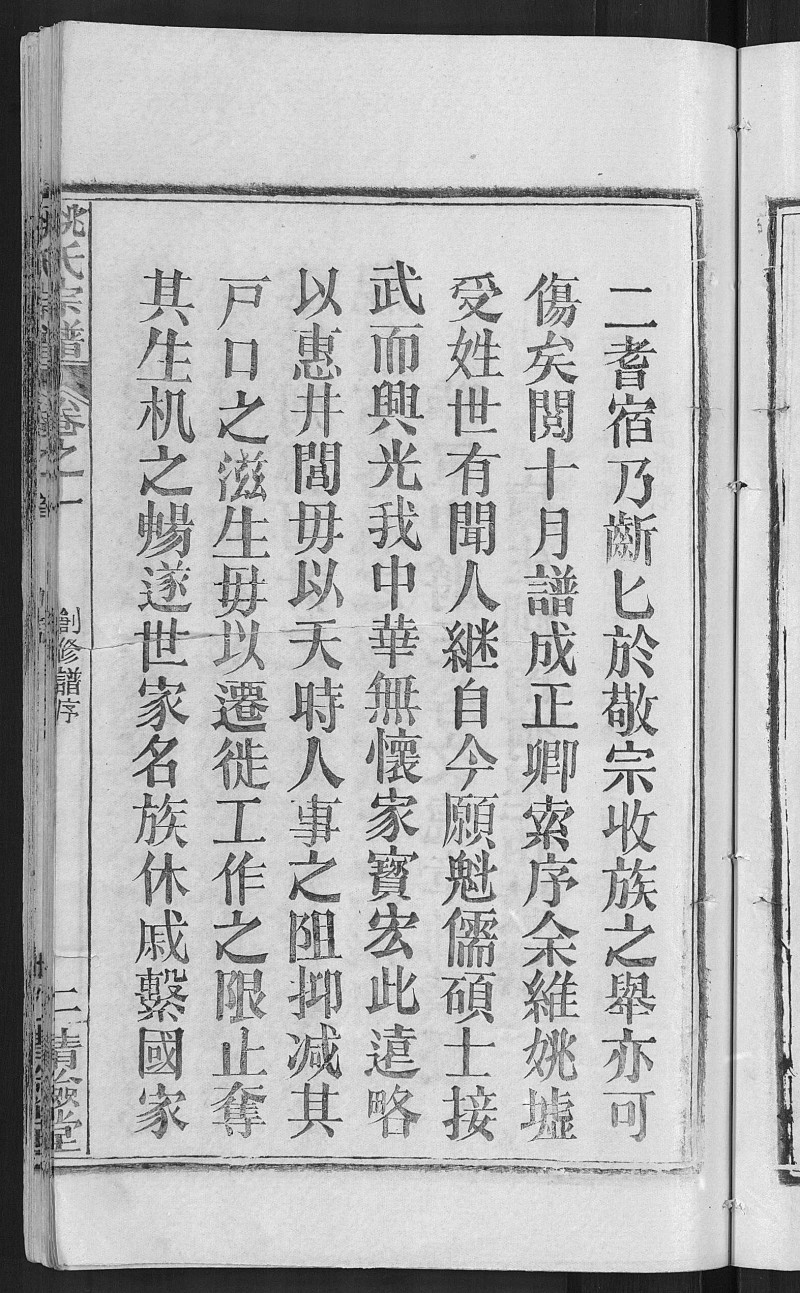 二耆宿乃斷匕於敬宗收族之舉亦可
傷矣閲十月譜成正卿索序余維姚墟
受姓世有聞人継自今願魁儒碩士接
武而興光我中華無懷家寳宏此遠略
以惠井閭毋以天時人事之阻抑减其
戸口之滋生毋以遷徙工作之限止奪
其生机之暢遂世家名族休戚繫國家
姚氏宗譜 卷之一
創修譜序
二